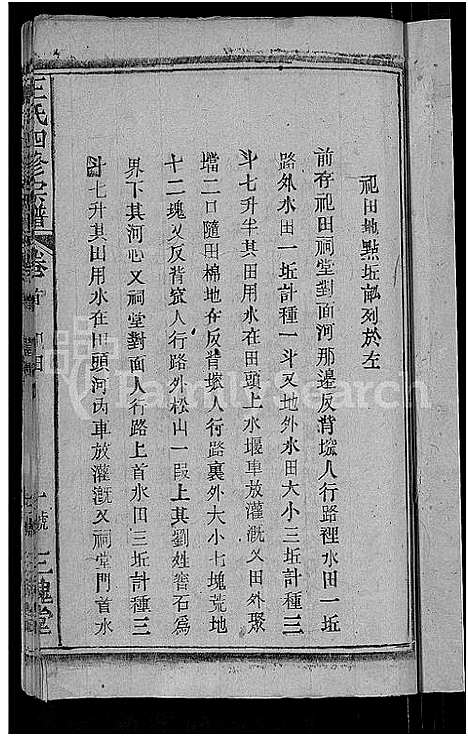 祀田地點坵畝列於左
前存祀田祠堂對面河那邊反背塝人行路裡水田一坵
路外水田一坵計種一斗又地外水田大小三坵計種三
斗七升半其田用水在田頭上水堰車放灌溉又田外聚
壋二口隨田棉地在反背塝人行路裏外大小七塊荒地
十二塊又反背塝人行路外松山一叚上其劉姓窖石為
界下其河心又祠堂對面人行路上首水田三坵計種三
斗七升其田用水在田頭河內車放灌溉又祠堂門首水
王氏四修宗譜
卷首
祀田
三槐堂
FamilySearch